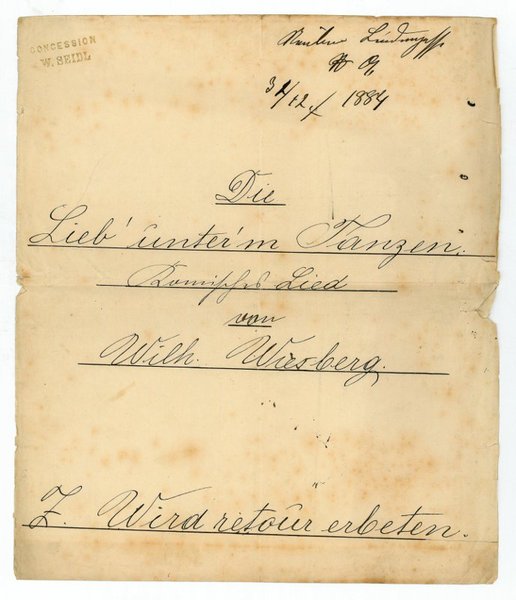 CONCESSION
W. SEIDL
31/12./ 1884
Die
Lieb' unter'm Tanzen.
Komisches Lied
von
Wilh. Wiesberg.
Z. Wird retour erbeten.